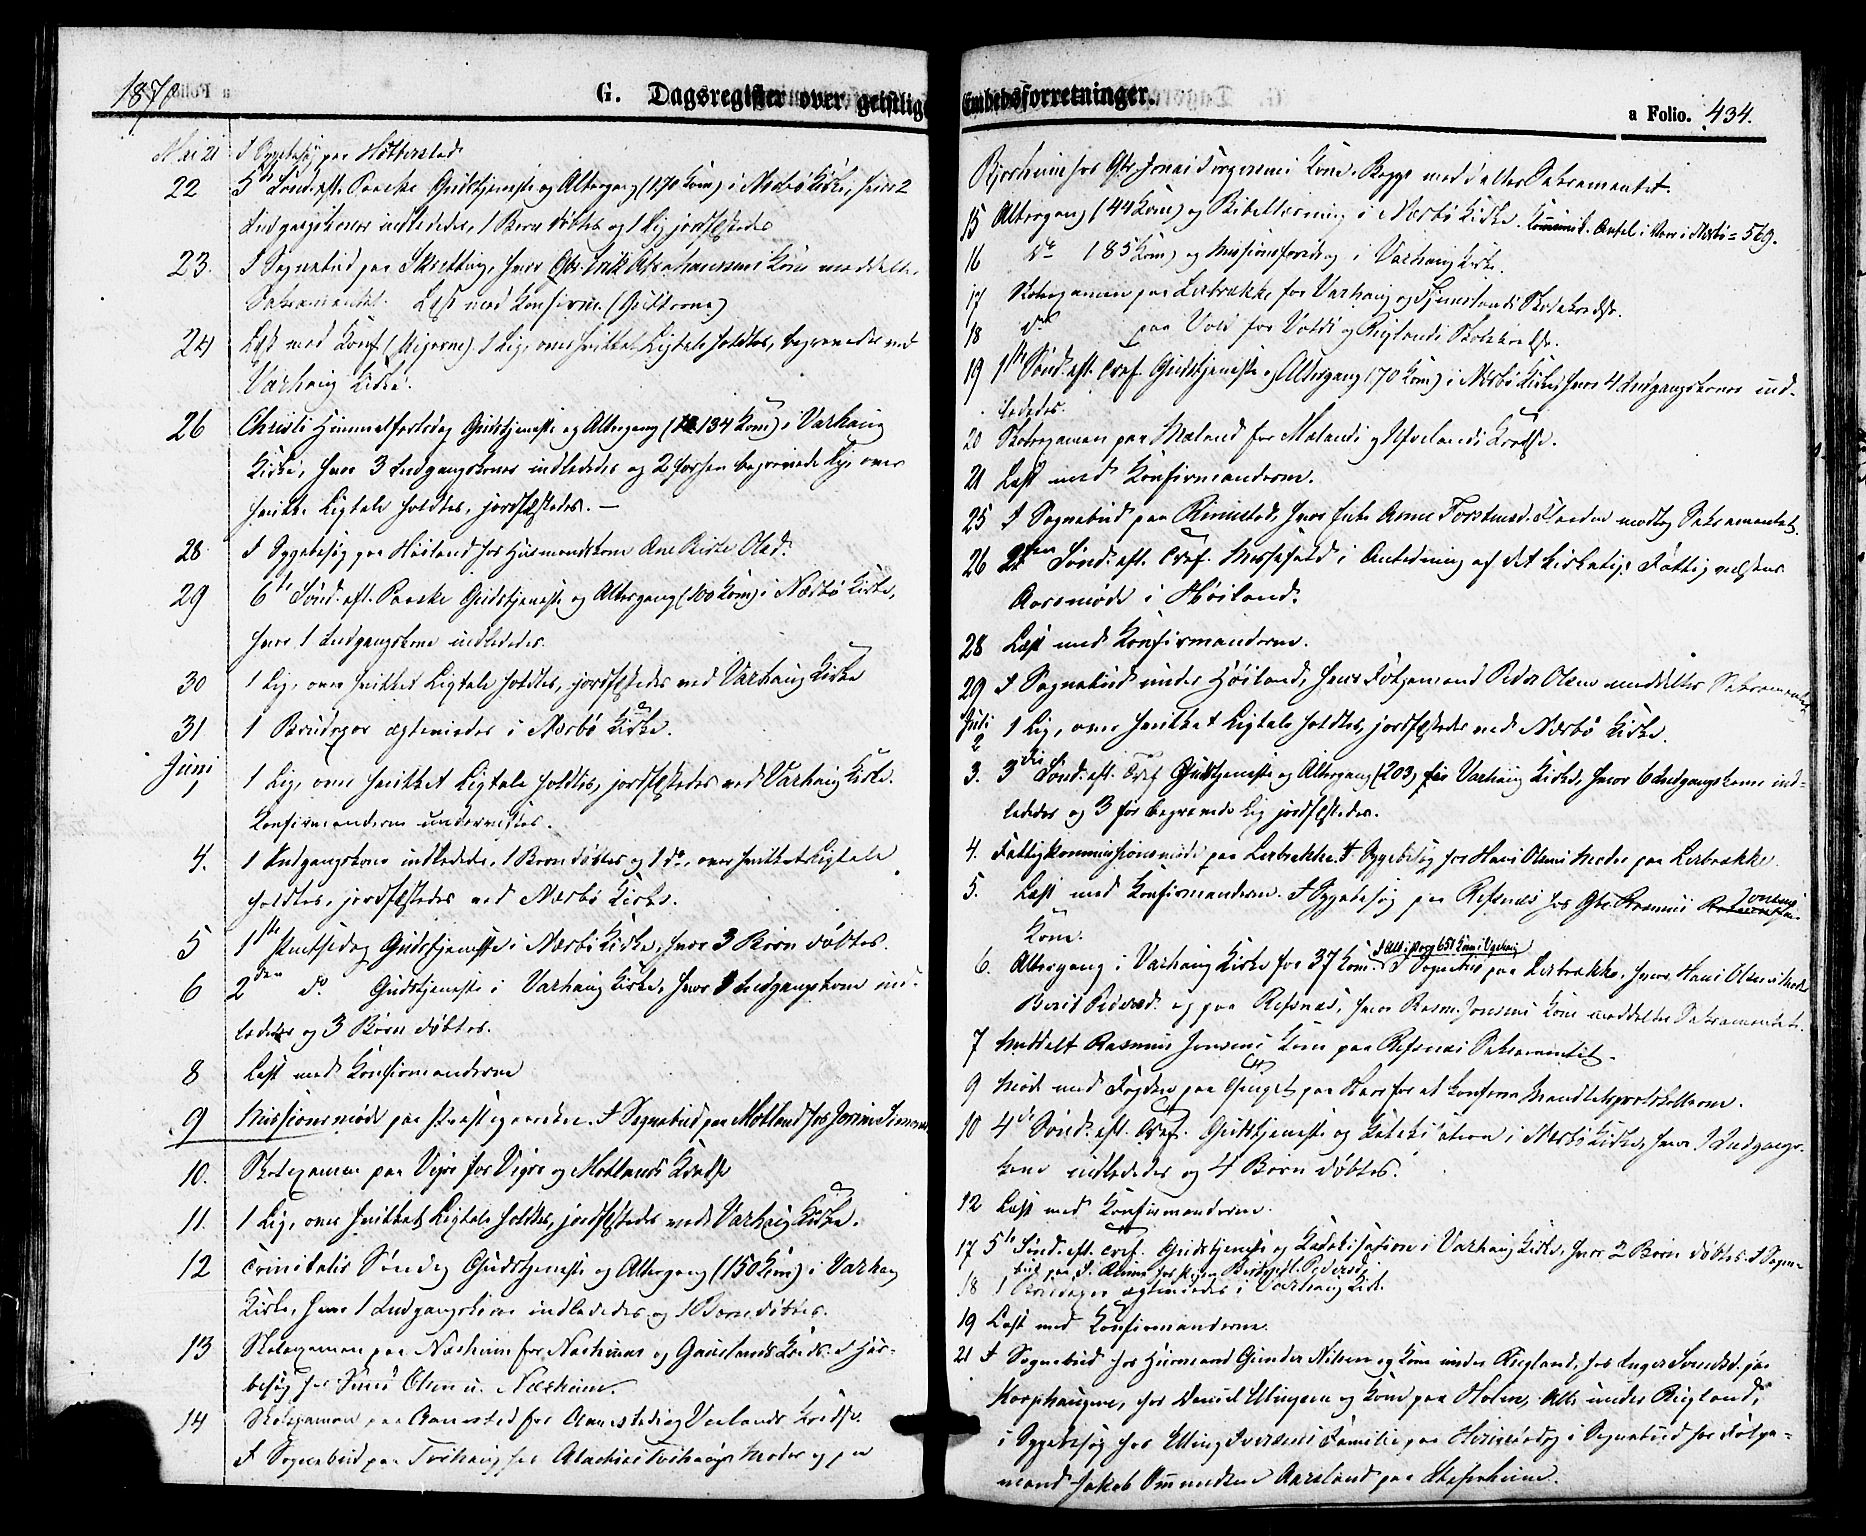 1870
G. Dagsregister over geistlige Embedsforretninger.
a Folio. 434.
Mai 21 I Sygebesøg paa Hobberstad
22 5te Sønd. eft. Paaske Gudstjeneste og Altergang (170 Kom) i Nærbø Kirke, hvor 2
Indgangskoner indlededes, 1 Barn døbtes og 1 Lig jordfæstedes
23. I Sognebud paa Skretting, hvor Gbr. Erik Abrahamsens Kone meddeltes
Sakramentet. Læst med Konfirm. (Gutterne)
24 Læst med Konf. (Pigerne). 1 Lig, over hvilket Ligtale holdtes, begravedes ved
Varhaug Kirke.
26 Christi Himmelfartsdag Gudstjeneste og Altergang (134 Kom) i Varhaug
Kirke, hvor 3 Indgangskoner indlededes og 2 forhen begravede Lig, over
hvilke Ligtale holdtes, jordfæstedes. —
28 I Sygebesøg paa Høiland hos Husmandskone Ane Kirstine Olsd.
29 6te Sønd. eft. Paaske Gudstjeneste og Altergang (100 Kom) i Nærbø Kirke,
hvor 1 Indgangskone indlededes.
30 1 Lig, over hvilket Ligtale holdtes, jordfæstedes ved Varhaug Kirke
31 1 Brudepar ægteviedes i Nærbø Kirke.
Juni
1 1 Lig, over hvilket Ligtale holdtes, jordfæstedes ved Varhaug Kirke.
Konfirmanderne undervistes.
4. 1 Indgangskone indlededes, 1 Barn døbtes og 1 do, over hvilket Ligtale
holdtes, jordfæstedes ved Nærbø Kirke.
5 1ste Pintsedag Gudstjeneste i Nærbø Kirke, hvor 3 Børn døbtes.
6 2den do Gudstjeneste i Varhaug Kirke, hvor 1 Indgangskone ind-
lededes og 3 Børn døbtes.
8 Læst med Konfirmanderne
9 Missionsmøde paa Præstegaarden. I Sognebud paa Motland hos
10. Skolexamen paa Vigre for Vigre og Motlands Kreds
11. 1 Lig, over hvilket Ligtale holdtes, jordfæstedes ved Varhaug Kirke.
12 Trinitatis Søndag Gudstjeneste og Altergang (150 Kom) i Varhaug
Kirke, hvor 1 Indgangskone indlededes og 1 Barn døbtes.
13 Skolexamen paa Næsheim for Næsheims og Gauslands Kreds. I Hus-
besøg hos Olsen u. Næsheim.
14 Skolexamen paa Aanestad for Aanestad og Kredse.
I Sognebud paa Torhaug hos Moder og paa
Bjorheim hos Gbr. Jonas Torgersens Kone. Begge meddeltes Sakramentet.
15 Altergang (44 Kom) og Bibellæsning i Nærbø Kirke. Kommunik. Antal i Vaar i Nærbø = 569.
16 do 185 Kom) og Missionsforedrag i Varhaug Kirke.
17 Skolexamen paa Lerbrække for Varhaug og Skolekredse.
18 do paa Vold for Volds og Ruglands Skolekredse.
19 1ste Sønd. eft. Tref. Gudstjeneste og Altergang 170 Kom) i Nærbø Kirke, hvor 4 Indgangskoner ind-
lededes.
20 Skolexamen paa Mæland for Mælands og Kredse.
21 Læst med Konfirmanderne.
25 I Sognebud paa Rimestad, hvor Enke Anne Torstensd. modtog Sakramentet.
26 2den Sønd. eft. Tref. Messefald i Anledning af det Fattigvæsens
Aarsmøde i Høiland.
28 Læst med Konfirmanderne.
29 I Sognebud under Høiland, hvor Følgemand Peder Olsen meddeltes Sakramentet
Juli
2 1 Lig, over hvilket Ligtale holdtes, jordfæstedes ved Nærbø Kirke.
3. 3die Sønd. eft. Tref Gudstjeneste og Altergang (203) for Varhaug Kirke, hvor 6 Indgangskoner ind-
lededes og 3 før begravede Lig jordfæstedes.
4. Fattigkommissionsmøde paa Lerbrække. I Sygebesøg hos Hans Olsens Moder paa Lerbrække.
5. Læst med Konfirmanderne. I Sygebesøg paa Refsnæs hos Gbr. Rasmus Jonsens
Kone.
6. Altergang i Varhaug Kirke for 37 Kom. I Sognebud paa Lerbrække, hvor Hans Olsens Moder
Berit Pedersd. og paa Refsnæs, hvor Rasm. Jonsens Kone meddeltes Sakramentet.
7 Meddelt Rasmus Jonsens Kone paa Refsnæs Sakramentet.
9 Møde med Fogden paa Thinget paa Haar for at konferere Mandtalsprotokollerne.
10 4de Sønd. eft. Tref. Gudstjeneste og Katekisation i Nærbø Kirke, hvor 1 Indgangs-
kone indlededes og 4 Børn døbtes.
12 Læst med Konfirmanderne.
17 5te Sønd. eft. Tref. Gudstjeneste og Katekisation i Varhaug Kirke, hvor 2 Børn døbtes. I Sogne-
bud paa S. hos Pigen Pedersd.
18 1 Brudepar ægteviedes i Varhaug Kirke.
19 Læst med Konfirmanderne.
21 I Sognebud hos Husmand Gunder Nilsen og Kone under Rugland, hos Inger Svendsd. paa
hos Daniel Ellingsen og Kone paa Holen, Alle under Rugland,
i Sygebesøg hos Elling Iversens Familie paa i Sognebud hos Følge-
mand Jakob Omundsen Aarsland paa Stefsheim.